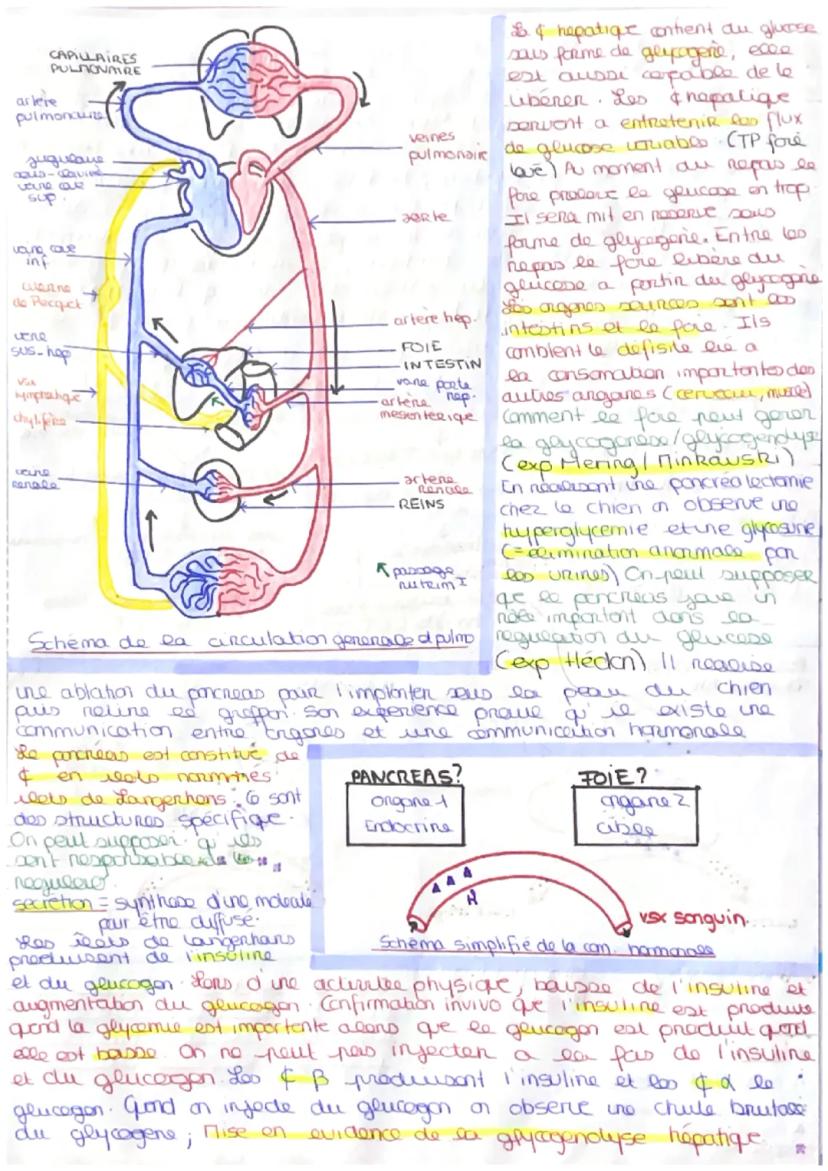 CAPILLAIRES
PULMONAIRE
artère
pulmonaire
jugulaire
veine cave
sup.
veine cave
inf
citerne
de Pecquet
veine
sus-hep
vsx
lymphatique
chylifère
veine
renale
veines
pulmonaire
aorte
artère hep.
FOIE
INTESTIN
veine porte
hep.
artère
mesenterique
artere
renale
REINS
passage
nutrim I
Schéma de la circulation generale et pulmo
La ¢ hepatique contient du glucose
sous forme de glycogène, elle
est aussi capable de le
libérer. Les ¢ hepatique
servent a entretenir les flux
de glucose variables. (TP foie
lavé) Au moment du repas le
foie prelève le glucose en trop.
Il sera mit en reserve sous
forme de glycogène. Entre les
repas le foie libère du
glucose a partir du glycogène
Les organes sources sont les
intestins et le foie. Ils
comblent le défisite lié a
la consomation importantes des
autres organes (cerveau, muscle)
Comment le foie peut gerer
la glycogenèse/glycogenolyse
(exp Mering/Minkowski)
En realisant une pancréalectomie
chez le chien on observe une
hyperglycemie et une glycosurie
(= élimination anormale par
les urines) On peut supposer
que le pancréas joue un
role important dans la
regulation du glucose
(exp Hédon) Il realise
une ablation du pancreas pour l'implanter sous la peau du chien
puis retire le greffon. Son experience prouve qu'il existe une
communication entre organes et une communication hormonale
Le pancréas est constitué de
¢ en ilots nommés
ilots de Langerhans. Ce sont
des structures spécifique.
On peut supposer qu'ils
sont responsable de la
secrétion = synthèse d'une molecule
pour être diffusé.
Les ilots de Langerhans
produisent de l'insuline
PANCREAS?
organe 1
Endocrine
FOIE?
organe 2
cible
vsx sanguin.
Schéma simplifié de la com. hormonale
et du glucogon. Lors d'une activitée physique, baisse de l'insuline et
augmentation du glucogon. Confirmation invivo que l'insuline est produite
quand la glycemie est importante alors que le glucogon est produit quand
elle est basse. On ne peut pas injecter a la fois de l'insuline
et du glucogon. Les ¢ β produisent l'insuline et les ¢ α le
glucogon. Quand on injecte du glucogon on observe une chute brutale
du glycogene ; Mise en evidence de la glycogenolyse hépatique.